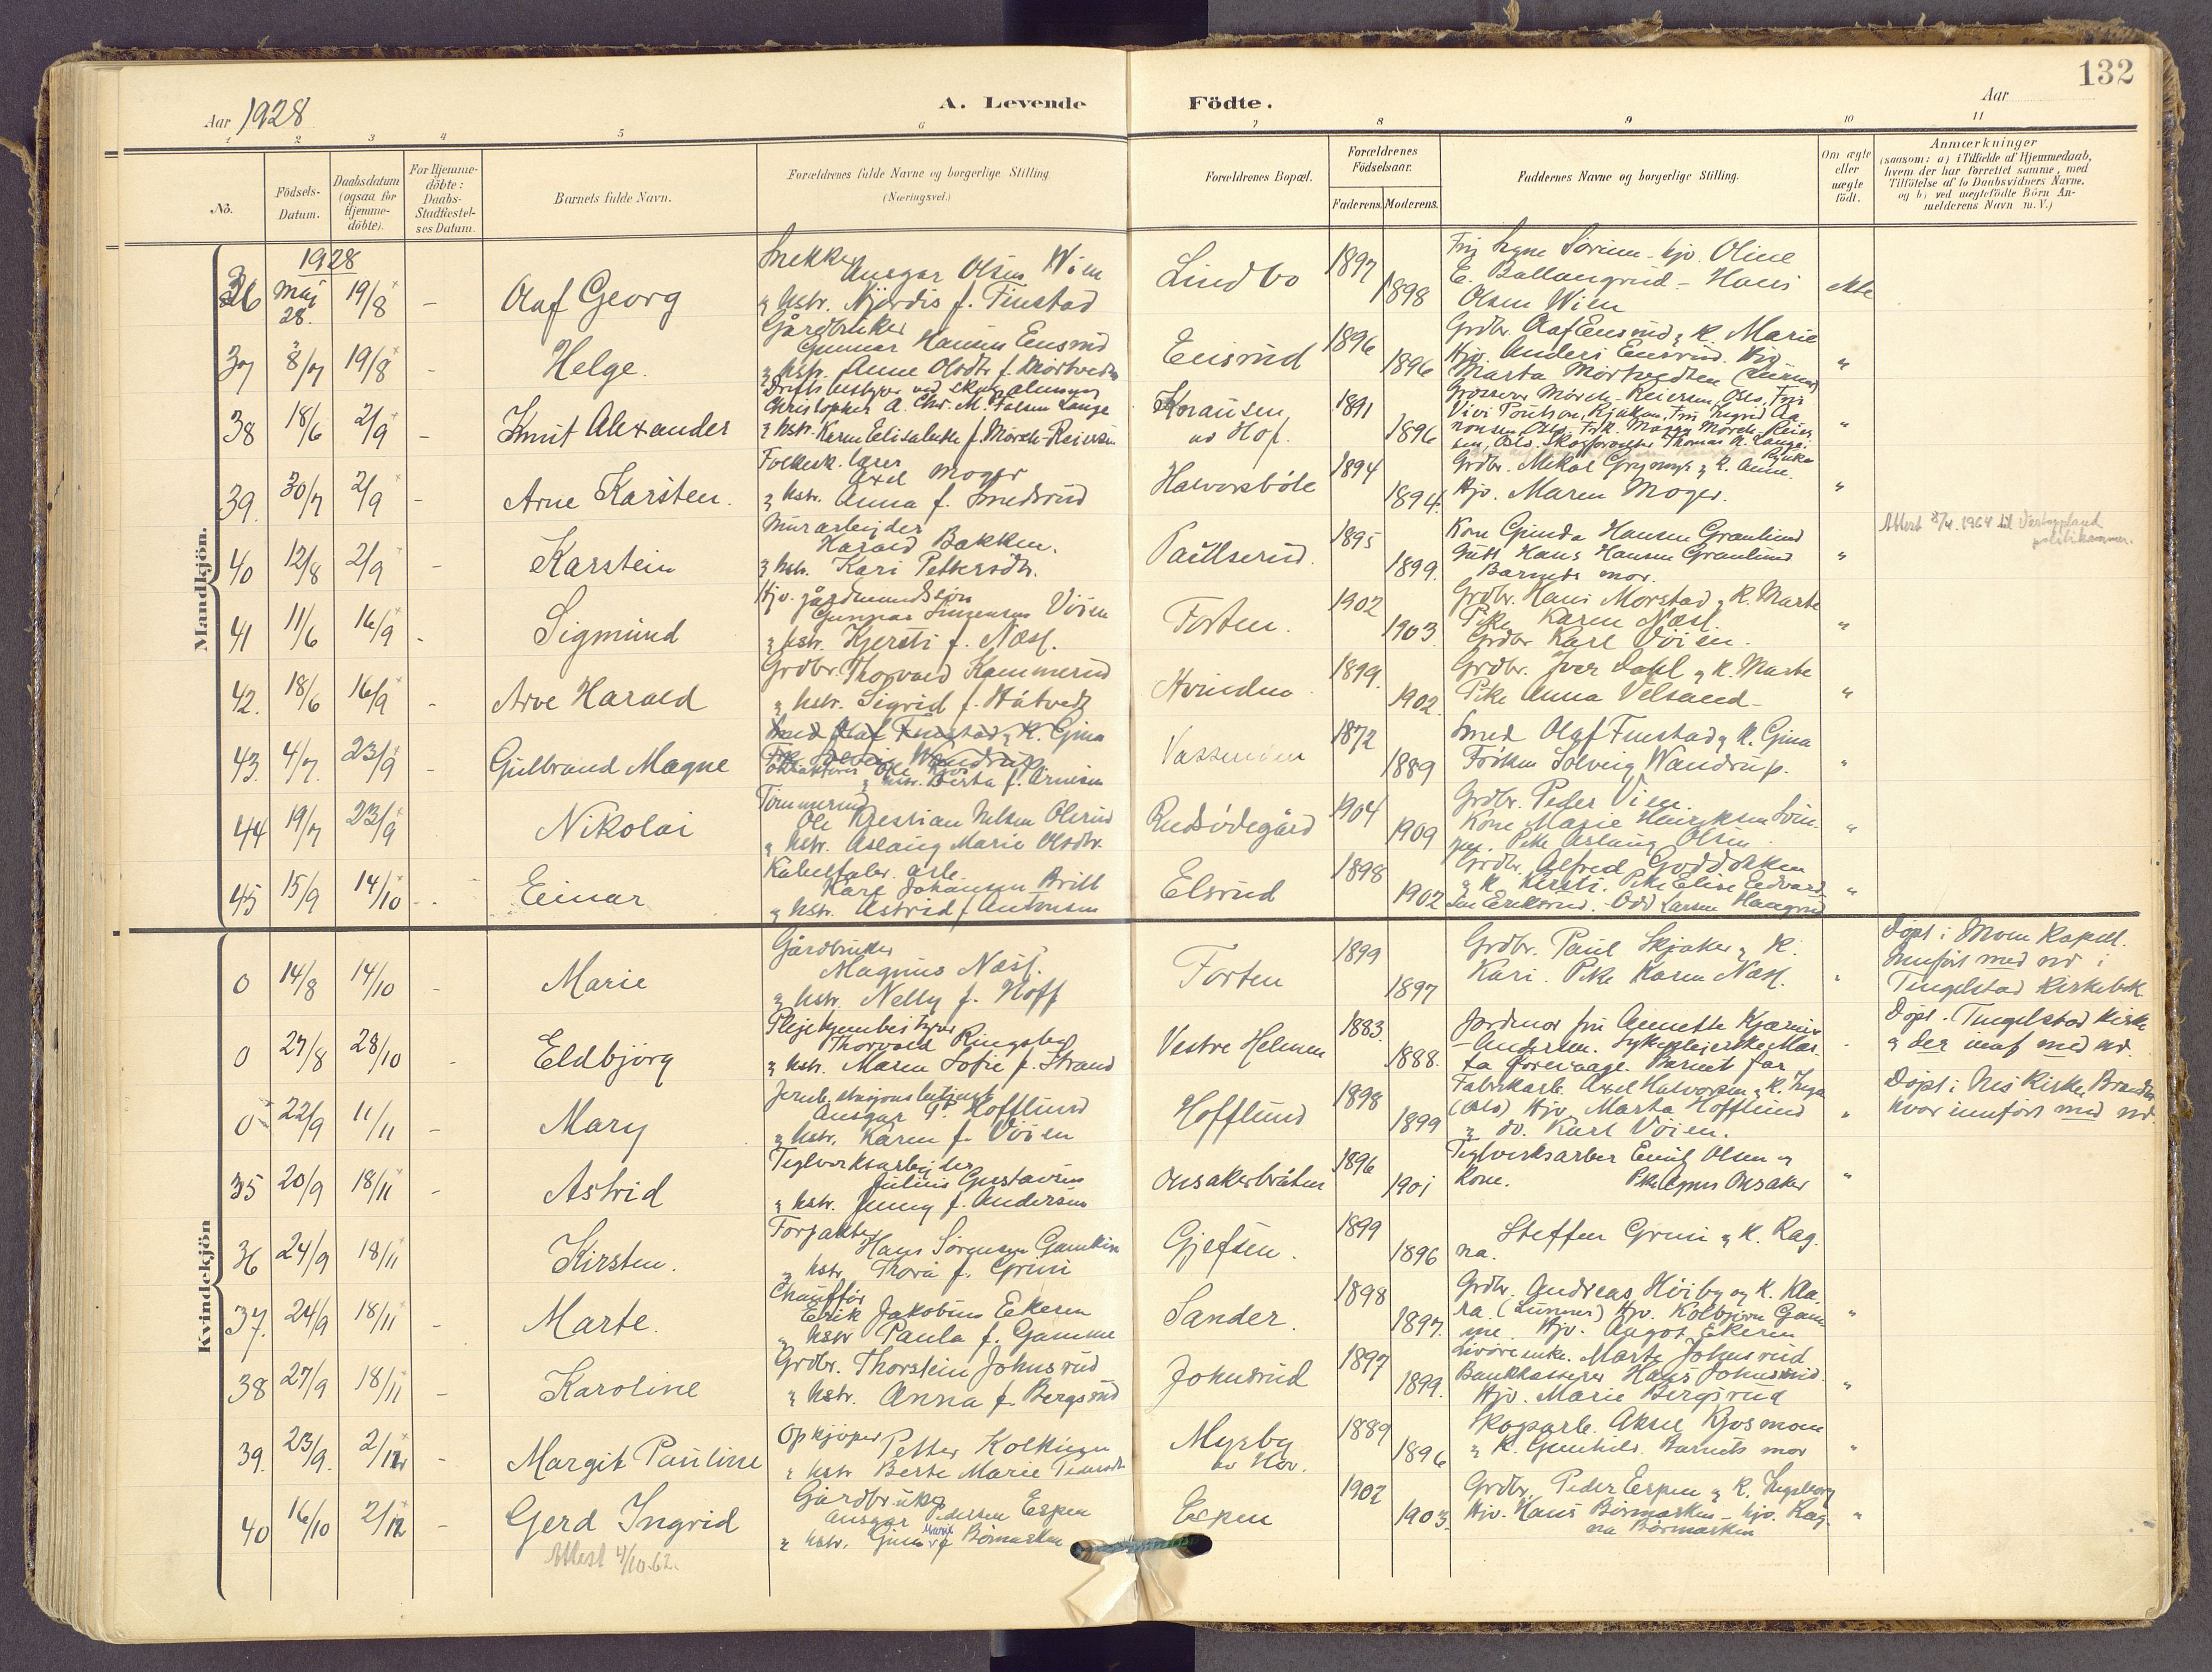 132
Aar 1928
A. Levende Födte.
Aar
1 2 3 4 5 6 7 8 9 10 11
No.
Födsels-Datum.
Daabsdatum (ogsaa for Hjemme-döbte).
For Hjemme-döbte: Daabs-Stadfæstel-ses Datum.
Barnets fulde Navn.
Forældrenes fulde Navne og borgerlige Stilling
(Næringsvei.)
Forældrenes Bopæl.
Forældrenes Födselsaar.
Faderens. Moderens.
Faddernes Navne og borgerlige Stilling.
Om ægte eller uægte födt.
Anmærkninger
(saasom: a) i Tilfælde af Hjemmedaab,
hvem der har forrettet samme, med
Tilföielse af to Daabsvidners Navne,
og b) ved uægtefödte Börn An-
melderens Navn m. V.)
Mandkjön.
1928
36 Maj 28. 19/8 - Olaf Georg
Snekker Ansgar Olsen Wien
& hstr. Njördis f. Finstad
Lindbo 1897 1898
Signe Sörum - hjv. Oline
E. Ballangrud - Hans
Olsen Wien
ekte
37 8/7 19/8 - Helge.
Gårdbruker
Gunnar Hansen Eensrud
& hstr. Anne Olsdtr f. Mörtvedten
Eensrud 1896 1896
Grdbr. Olaf Eensrud & K. Marie
Hjv. Anders Eensrud.
Marta Mörtvedten (Lunner)
"
38 18/6 2/9 - Knut Alexander
Christopher A. Chr. M. Falsen Lange
& hstr. Karen Elisabeth f. Mörch-Reiersen
Knausen av Hof. 1891 1896
Grosserer Mörch-Reiersen, Oslo, Fru
Vivi Poulson, Rjukan, Fru Ingrid Aa
"
39. 30/7 2/9 - Arne Karsten.
Folkesk. lærer
Axel Moger
& hstr. Anna f. Smedsrud
Halvorsböle 1894 1894.
Grdbr. Mikal & K. Anne.
Hjv. Maren Moger.
"
40 12/8 2/9 - Karstein
Murarbejder
Harald Bakken.
& hstr. Kari Pettersdtr.
Paulserud. 1895 1899.
Kone Gunda Hansen Granlund
Gutt Hans Hansen Granlund
Barnets mor.
"
Attest 1964 til Vestoppland
politikammer.
41 11/6 16/9 - Sigmund
Hjv. gårdmandssön
Gunnar Vöien
& hstr. Kjersti f. Næss.
Forten. 1902 1903.
Grdbr. Hans Morstad & K. Marte
Pike Karen Næss.
Grdbr Karl Vöien.
"
42. 18/6 16/9 - Arve Harald
Grdbr. Thorvald Kammerud
& hstr. Sigrid f. Håtvedt
Hvinden 1899. 1902.
Grdbr. Iver Dahl & K. Marte
Pike Anna Velsand -
"
43. 4/7. 23/9 - Gulbrand Magne
Smed Olaf Finstad & K. Gina
Frk Solveig Wandrup
& hstr. Berta f. Arnesen
Vassenden 1872 1889
Smed Olaf Finstad & K. Gina
Fröken Solveig Wandrup.
"
44 19/7 23/9 Nikolai
Tömmermand
Ole Kristian Nelsen Olerud
& hstr. Aslaug Marie Olsdtr.
Rudsödegård 1904 1909
Grdbr. Peder Vien.
Kone Marie Henriksen
Pike Aslaug Olsen
"
45 15/9 14/10 - Einar
Karl Johansen Brill
& hstr. Astrid f Antonsen
Elsrud 1898 1902
Grdbr. Alfred Goddokken
& K. Kersti. Pike Elise Edvard
sen Eriksrud. Odd Larsen Haugrud
"
Kvindekjön
0 14/8 14/10 - Marie
Gårdbruker
Magnus Næss.
& hstr. Nelly f. Hoff
Forten 1899 1897
Grdbr. Paul Skjaker & K.
Kari. Pike Karen Næss.
"
Döpt i Moen Kapell.
Innfört med nr i
Tingelstad Kirkebok.
0 27/8 28/10 - Eldbjörg
Plejehjembestyrer
Thorvald Ringsby
& hstr. Maren Sofie f. Strand
Vestre Helmen 1883. 1888.
Jordmor fru Annette Kjærnis
Andersen. Sykepleierske Mar-
ta Barnets far
Döpt i Tingelstad kirke
& der innf med nr.
0 22/9 11/11 - Mary
Jernb. stasjonsbetjent
Ansgar Hofflund
& hstr. Karen f. Vöien
Hofflund 1898 1899
Fabrikarb. Axel Halvorsen & K. Inga
(Oslo) Hjv. Marta Hofflund
& do. Karl Vöien.
"
Döpt i Nes Kirke Brandbu
hvor innfört med nr.
35 20/9 18/11 - Astrid
Teglverksarbejder
Julius Gustavsen
& hstr. Jenny f. Andersen
Onsakerbråten 1896 1901
Teglverksarber Emil Olsen og
Kone. Pike Agnes Onsaker
"
36 24/9 18/11 Kirsten.
Forpakter
Hans Sörensen Gamkin
& hstr Thora f. Grini
Gjefsen. 1899 1896
Steffen Grini & K. Rag-
na.
37. 24/9 18/11 - Marte.
Chaufför
Erik Jakobsen Ekeren
& hstr Paula f. Gamme
Sander. 1898 1897.
Grdbr. Andreas Höiby og K. Kla
ra (Lunner) Hjv. Kolbjörn Gam
me. Hjv. Aagot Ekeren
"
38 27/9 18/11 - Karoline
Grdbr. Thorstein Johnsrud
& hstr. Anna f. Bergsrud
Johnsrud 1897 1899.
Livöreenke. Marte Johnsrud
Bankkasserer Hans Johnsrud.
Hjv. Marie Bergsrud
"
39. 23/9. 2/12 - Margit Pauline
Opkjöper Petter Kolkinn
& hstr Berte Marie Pedersdtr
Myrby av Hov. 1889 1896
Skogarb. Aksel Kjosmoen
& K. Gunhild. Barnets mor
"
40 16/10 2/12 - Gerd Ingrid
Gårdbruker
Ansgar Pedersen Espen
& hstr. Gina Marie f Börmarken
Espen 1902 1903.
Grdbr. Peder Espen & K. Ingeborg
Hjv. Hans Börmarken - hjv. Rag-
na Börmarken
"
Attest 4/10.62.